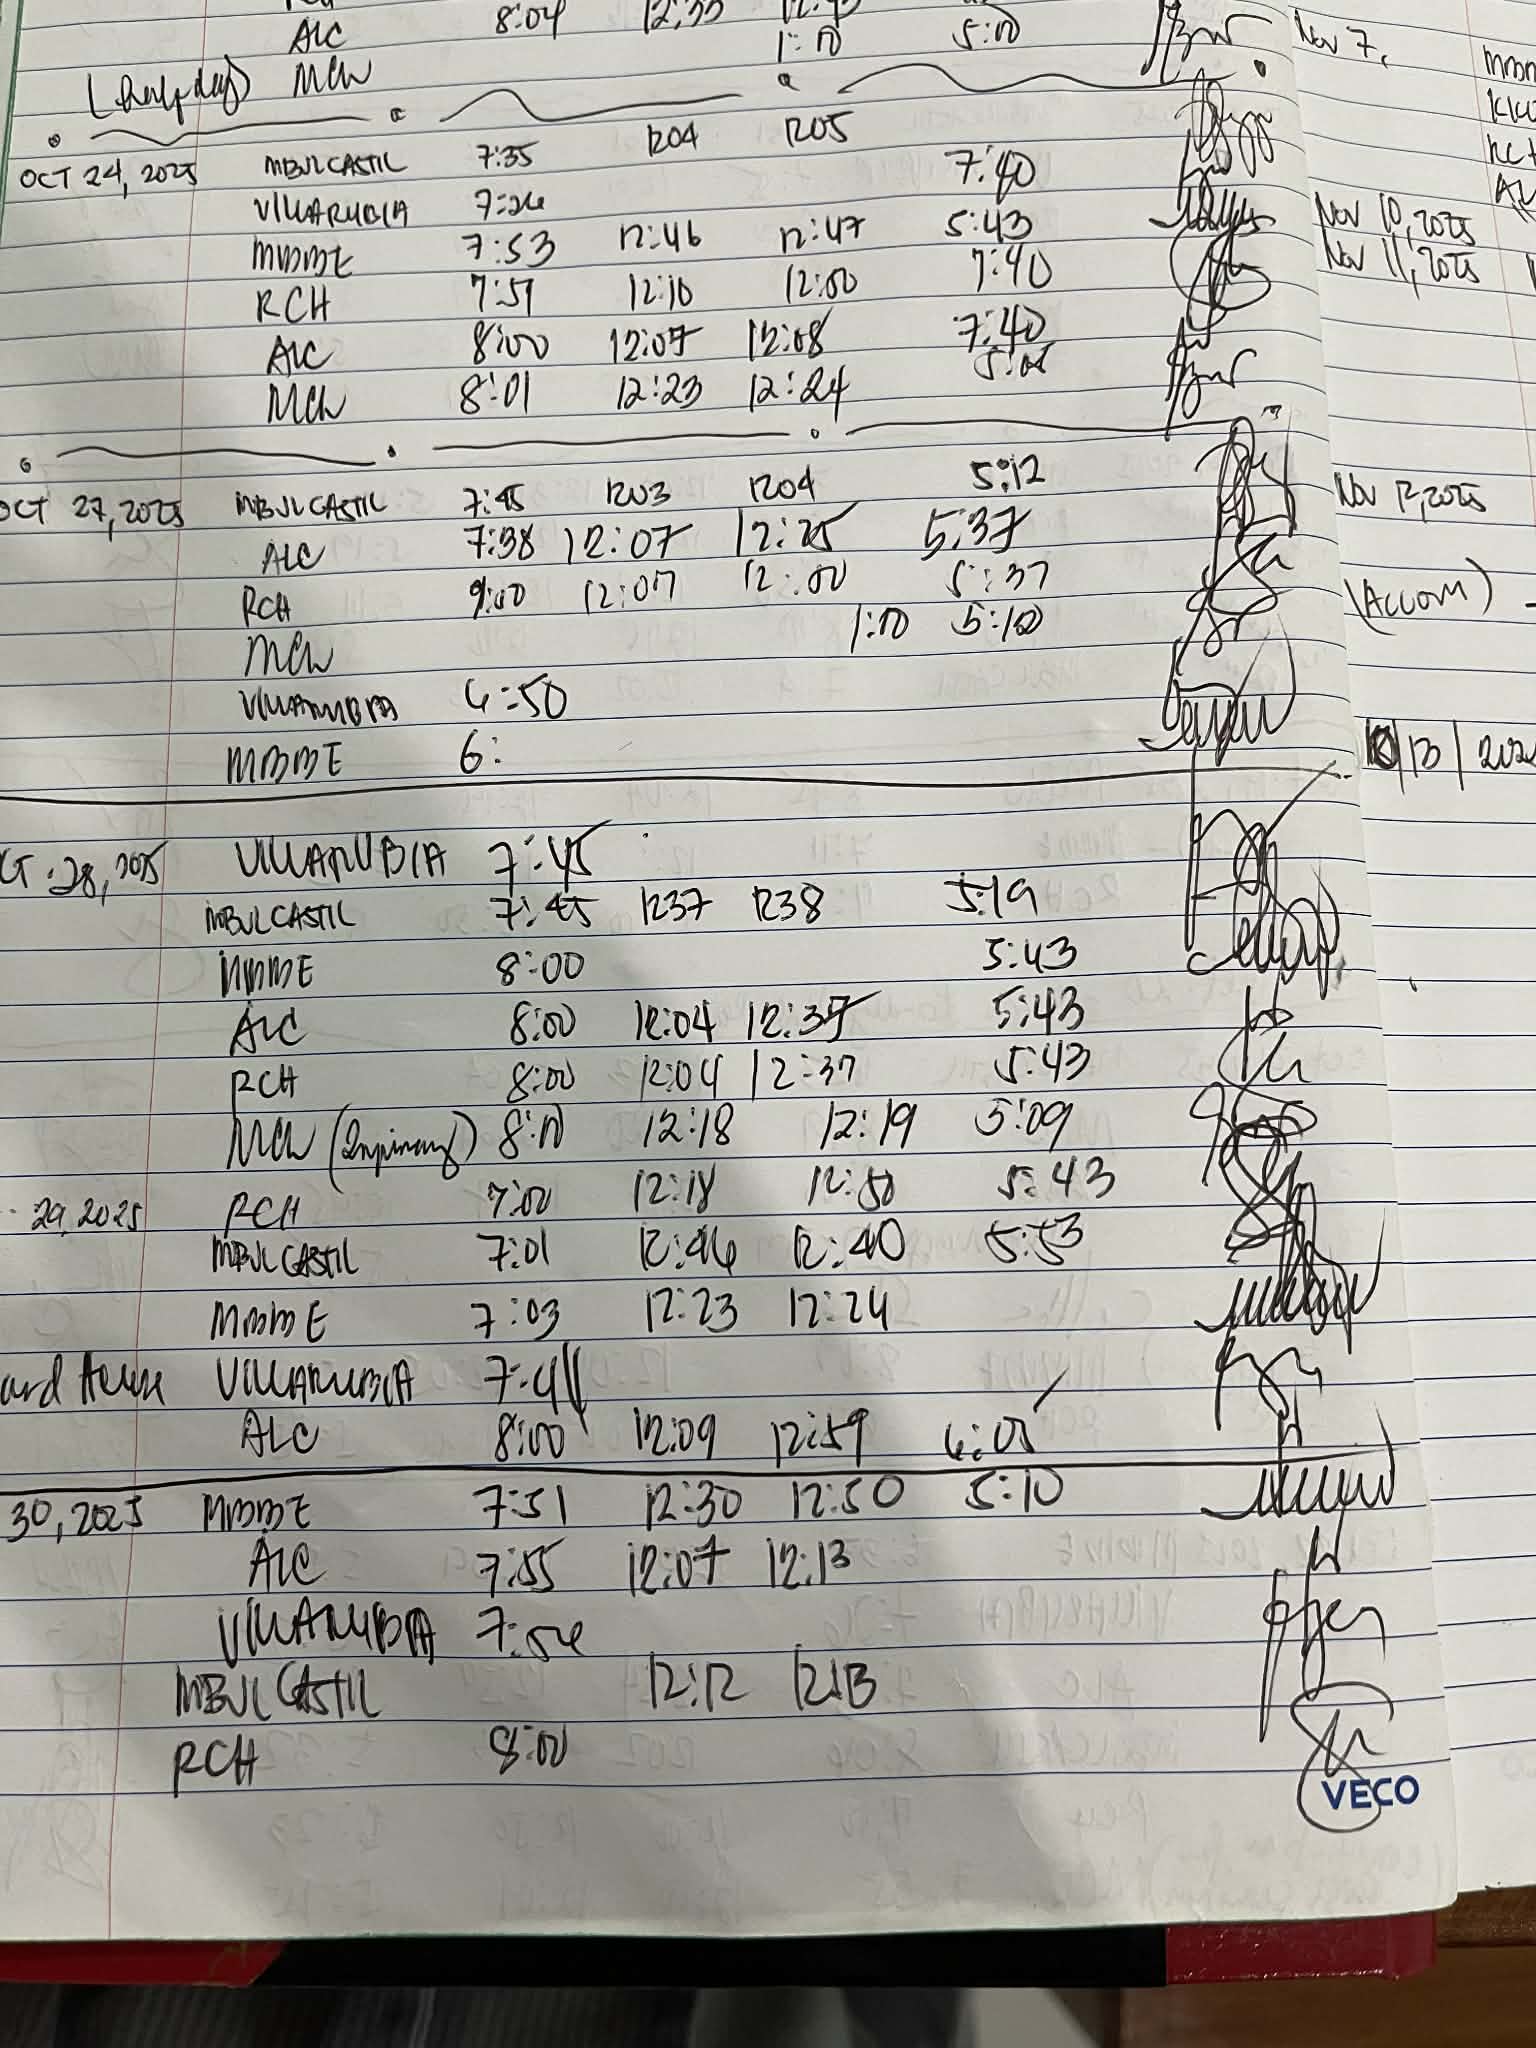 ALC 8:04 12:33
(half day) MCh 1:00 5:00
OCT 24, 2025 MBULCASTIL 7:35 1204 1205 7:40
VILLARUBIA 7:26
MBBE 7:53 12:46 12:47 5:43
RCH 7:51 12:10 12:00 7:40
ALC 8:00 12:07 12:08 7:40
MCh 8:01 12:23 12:24
OCT 27, 2025 MBULCASTIL 7:45 1203 1204 5:12
ALC 7:38 12:07 12:25 5:37
RCH 9:00 12:07 12:00 5:37
MCh 1:00 5:10
VILLARUBIA 6:50
MBBE 6:
28, 2025 VILLARUBIA 7:45
MBULCASTIL 7:45 1237 1238 5:19
MBBE 8:00 5:43
ALC 8:00 12:04 12:37 5:43
RCH 8:00 12:04 12:37 5:43
MCh 8:10 12:18 12:19 5:09
29, 2025 RCH 7:00 12:18 12:50 5:43
MBULCASTIL 7:01 12:46 12:40 5:53
MBBE 7:03 12:23 12:24
VILLARUBIA
ALC 8:00 12:09 12:59 6:05
30, 2025 MBBE 7:51 12:30 12:50 5:10
ALC 7:55 12:07 12:13
VILLARUBIA 7:56
MBULCASTIL 12:12 12:13
RCH 8:00
VECO
Nov 7,
Nov 10, 2025
Nov 11, 2025
Nov 12, 2025
(ACCOM)